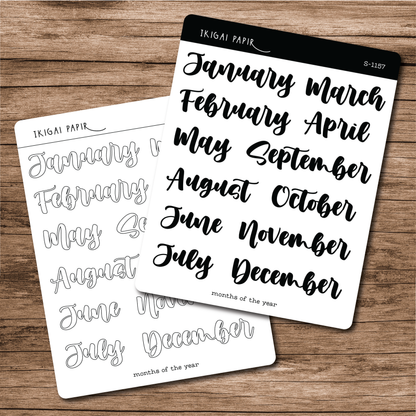 IKIGAI PAPIR
S-1157
January March
February April
May September
August October
June November
July December
months of the year
IKIGAI PAPIR
January M
February
May Se
August
June Nove
July December
months of the year